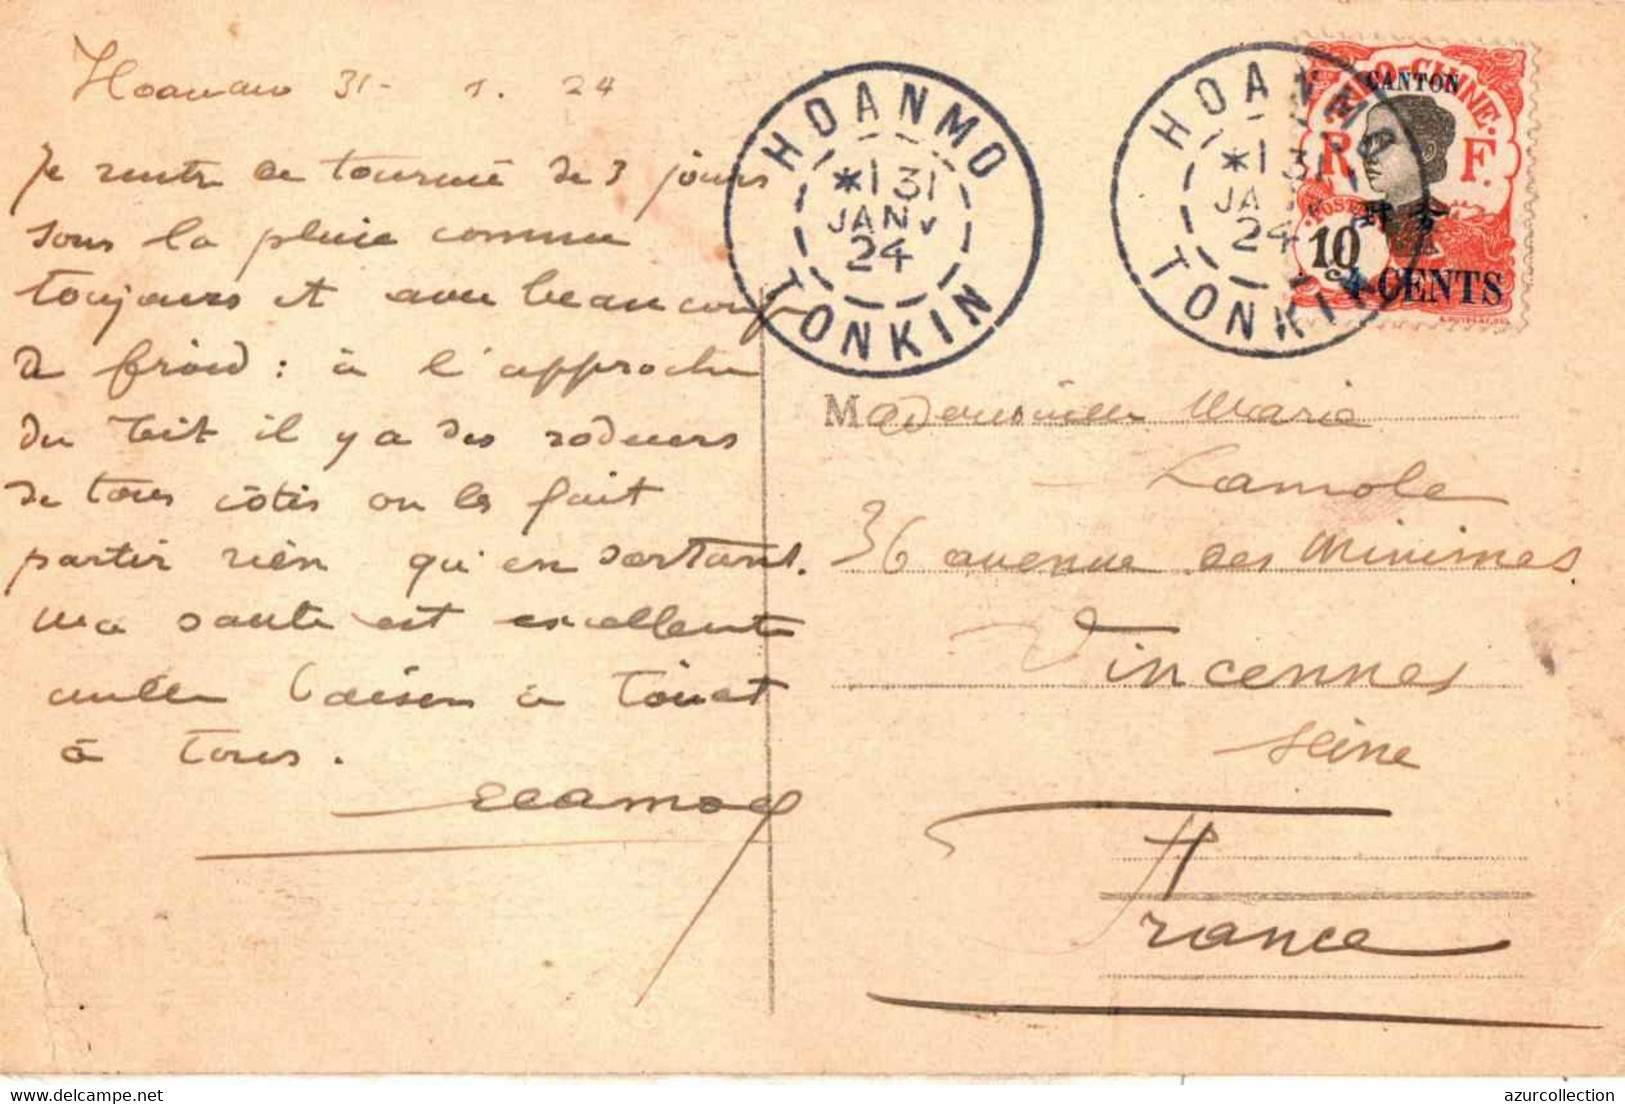 Hoanmo 31- 1. 24
Je rentre de tournée de 3 jours
sous la pluie comme
toujours et avec beaucoup
de froid : à l'approche
du Têt il y a des rodeurs
de tous côtés on les fait
partir rien qu'en sortant.
Ma santé est excellente
baisers à toi et
à tous.
HOANMO
*1 31
JANV
24
TONKIN
HOANMO
*1 31
JANV
24
TONKIN
INDO-CHINE.
CANTON
R F.
POSTES
10
4 CENTS
Mademoiselle Marie
Lamole
36 avenue des Minimes
Vincennes
Seine
France
azurcollection